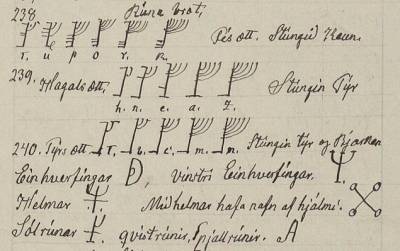 238. Rúna brot.
Fés ætt. Stúngið Kaun.
T. u þ O r. R.
239. Hagals ætt, Stúngin Týr
h. n. e. a. z.
240. Týrs ætt T. b. c. m. m. Stúngin týr og Bjarkan
Einhverfingar D, vinstri Einhverfingar.
Helmar Miðhelmar hafa nafn af hjálmi.
Sólrúnar qvistrúnir, Spjallrúnir. A